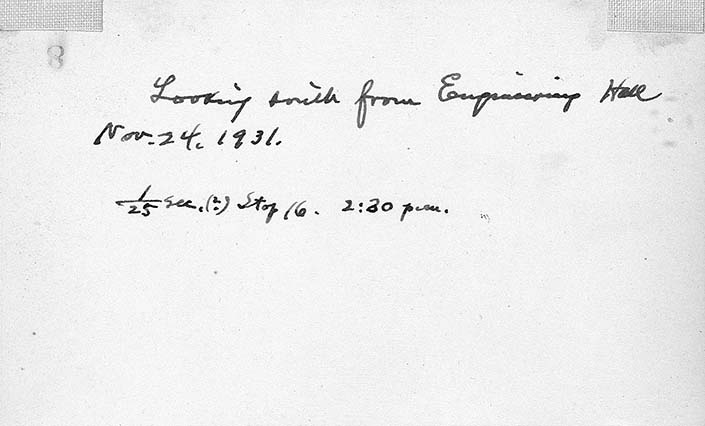 Looking south from Engineering Hall
Nov. 24, 1931.
1/25 sec. (?) Stop 16. 2:30 p.m.